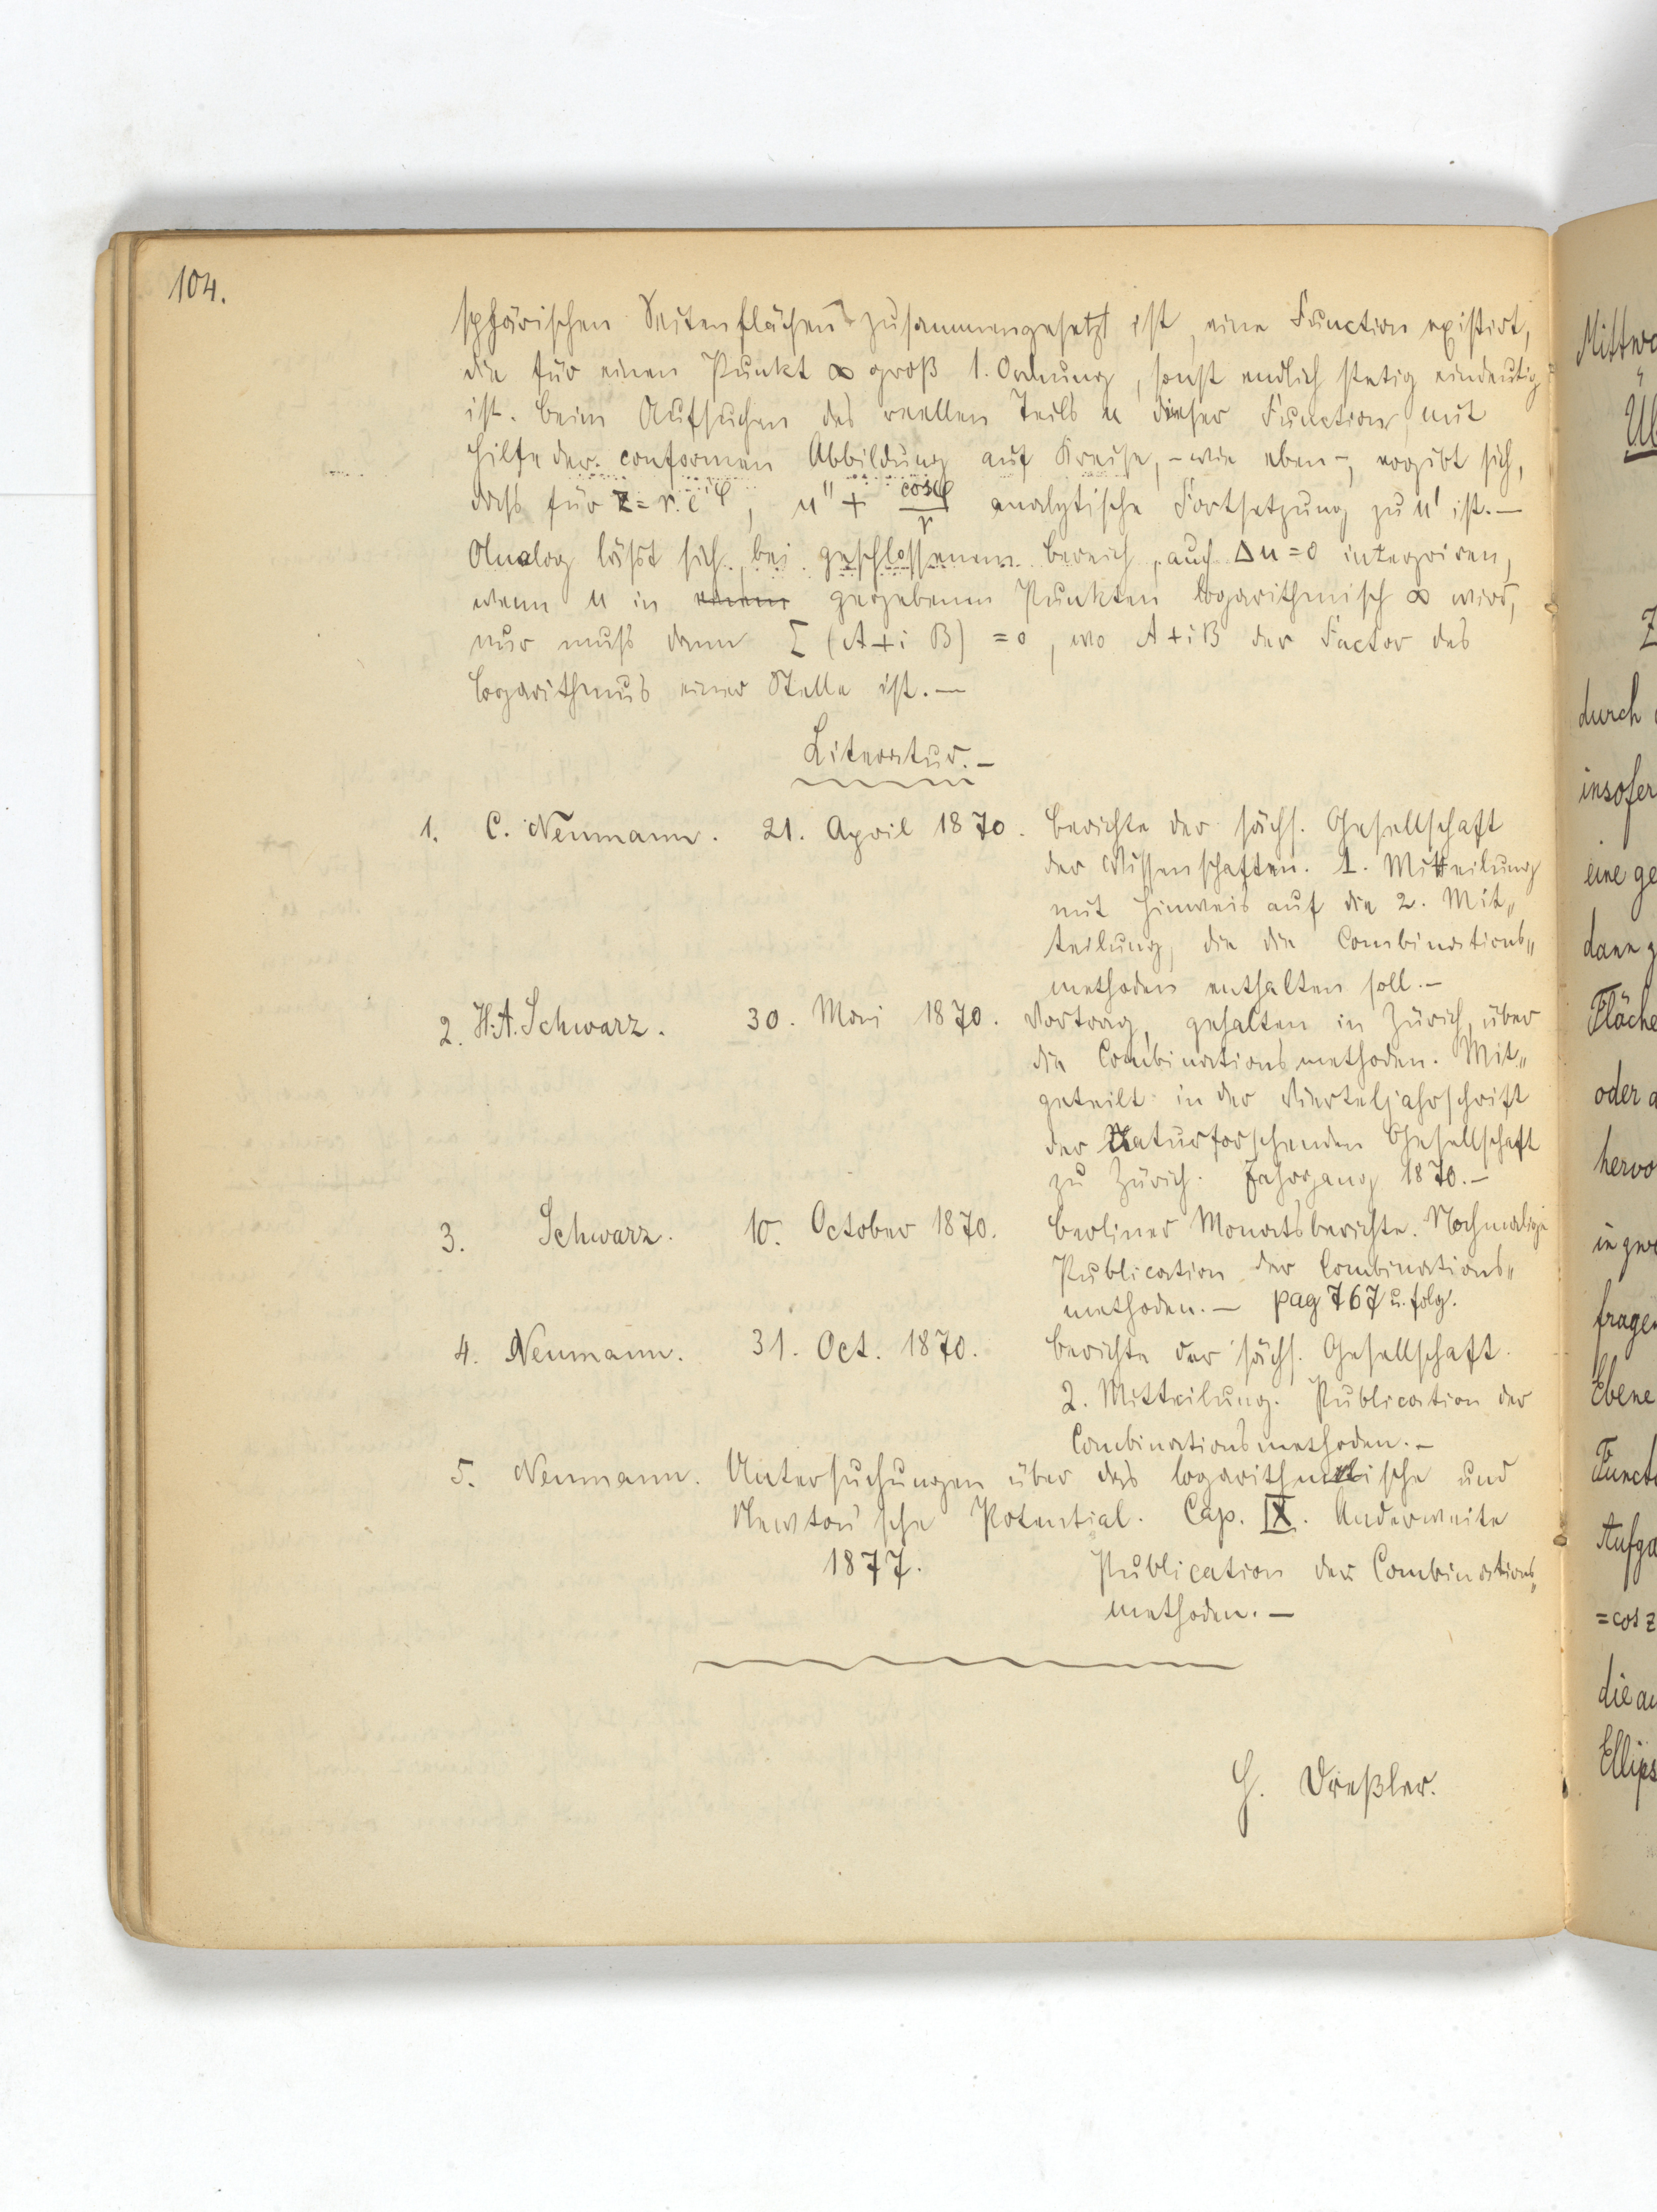 104.
sphärischen Seitenflächen zusammengesetzt ist, eine Function existirt,
die für einen Punkt ∞ groß 1. Ordnung, sonst endlich stetig eindeutig
ist. Beim Aufsuchen des reellen Teils u dieser Function mit
Hilfe der conformen Abbildung auf Kreise, - wie eben -, ergibt sich,
dass für z = r.e^{iφ}, u" + cosφ/r analytische Fortsetzung zu u' ist. —
Analog läßt sich, bei geschlossenem Bereich, auch Δu = 0 integriren,
wenn u in einem gegebenen Punkten logarithmisch ∞ wird,
nur muß dann Σ (A + i B) = 0, wo A + i B der Factor des
Logarithmus einer Stelle ist. —
Literatur. —
1. C. Neumann. 21. April 1870. Berichte der sächs. Gesellschaft
der Wissenschaften. 1. Mitteilung
mit Hinweis auf die 2. Mit„
teilung, die die Combinations„
methoden enthalten soll. —
2. H.A. Schwarz. 30. Mai 1870. Vortrag, gehalten in Zürich, über
die Combinationsmethoden. Mit„
geteilt in der Vierteljahrschrift
der Naturforschenden Gesellschaft
zu Zürich. Jahrgang 1870. —
3. Schwarz. 10. October 1870. Berliner Monatsberichte. Nochmalige
Publication der Combinations„
methoden. — pag 767 u. folg.
4. Neumann. 31. Oct. 1870. Berichte der sächs. Gesellschaft.
2. Mitteilung. Publication der
Combinationsmethoden. —
5. Neumann. Untersuchungen über das logarithmische und
Newton'sche Potential. Cap. IX. Anderweite
1877. Publication der Combinations„
methoden. —
H. Dreßler.
Z
durch
insofer
eine ge
dann g
Fläche
oder a
hervo
in gew
fragen
Ebene
Functi
Aufga
= cos z
die au
Ellips